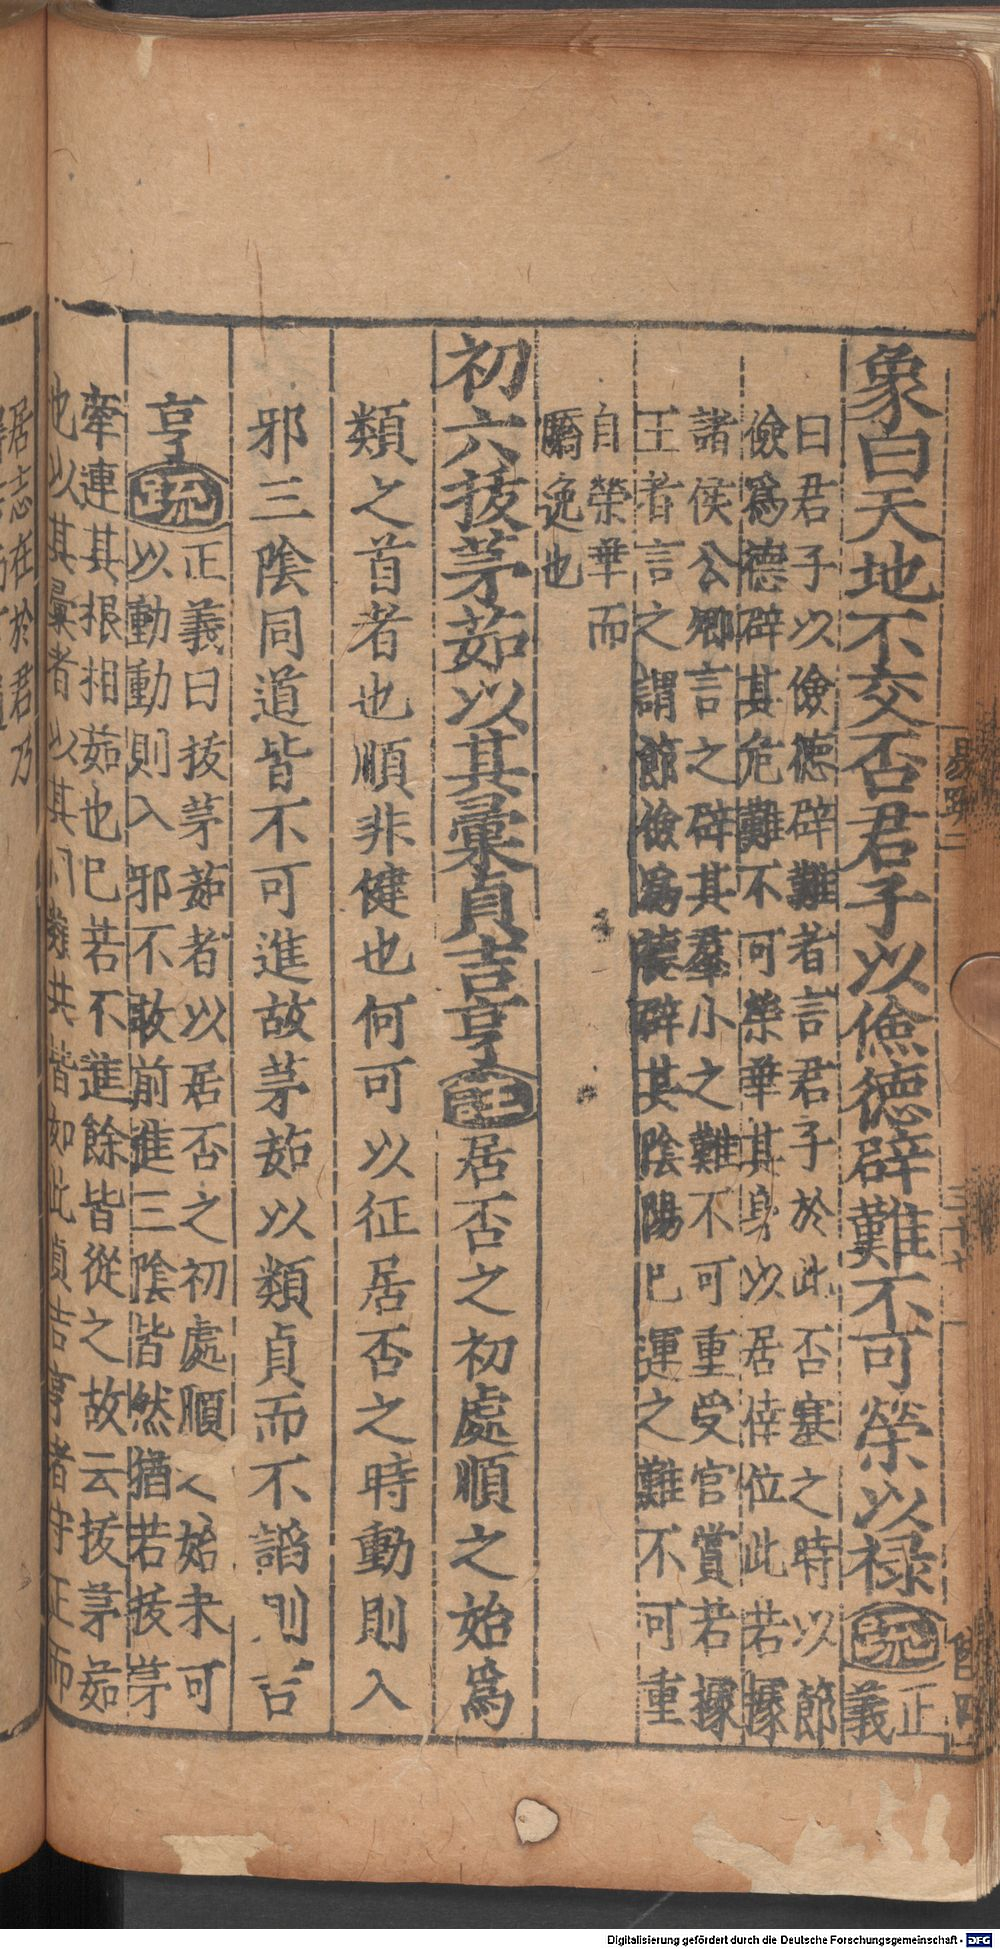 象曰天地不交否君子以儉德辟難不可榮以祿疏正義
曰君子以儉德辟難者言君子於此否塞之時以節
儉爲德辟其危難不可榮華其身以居倖位此若據
諸侯公卿言之辟其羣小之難不可重受官賞若據
王者言之謂節儉爲德辟其陰陽巳運之難不可重
自榮華而
驕逸也
初六拔茅茹以其彙貞吉亨注居否之初處順之始爲
類之首者也順非健也何可以征居否之時動則入
邪三陰同道皆不可進故茅茹以類貞而不諂則吉
亨疏正義曰拔茅茹者以居否之初處順之始未可
以動動則入邪不敢前進三陰皆然猶若拔茅
牽連其根相茹也巳若不進餘皆從之故云拔茅茹
也以其彙者以其同類共皆如此貞吉亨者守正而
居志在於君乃
易疏二
三十七
Digitalisierung gefördert durch die Deutsche Forschungsgemeinschaft - DFG